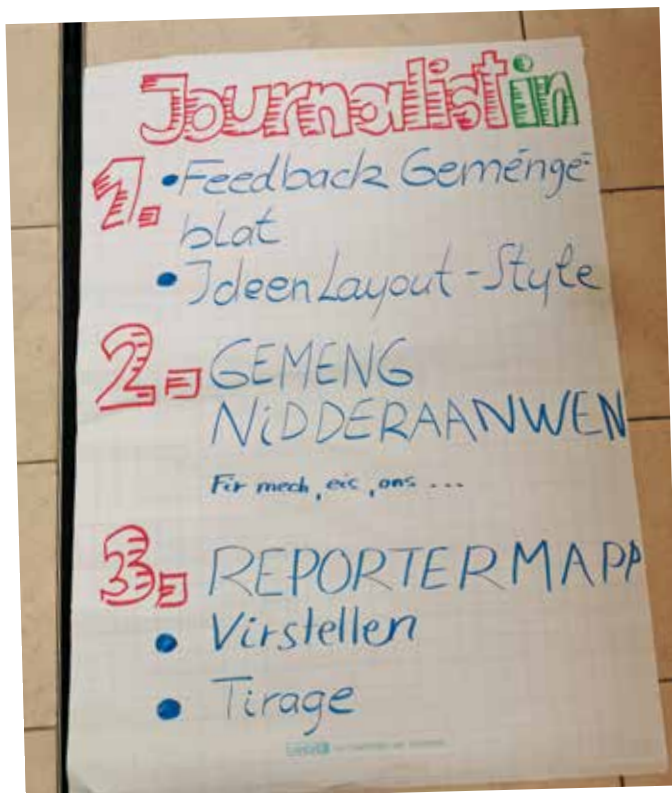 Journalistin
1. • Feedback Geménge-
blat
• Ideen Layout - Style
2. GEMENG
NiDDERAANWEN
Fir mech, eis, ons ...
3. REPORTERMAPP
• Virstellen
• Tirage